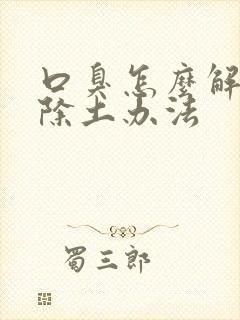 口臭怎麼解
除土办法
蜀三郎